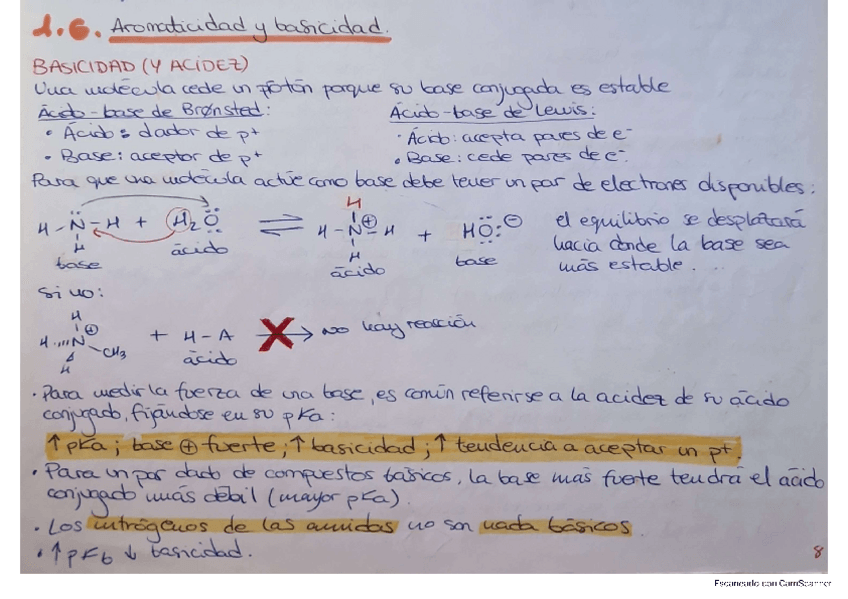 1.6. Aromaticidad y basicidad.
BASICIDAD (Y ACIDEZ)
Una molécula cede un protón porque su base conjugada es estable
Ácido-base de Brønsted: Ácido-base de Lewis:
• Ácido: dador de p+ • Ácido: acepta pares de e-
• Base: aceptor de p+ • Base: cede pares de e-.
Para que una molécula actúe como base debe tener un par de electrones disponibles:
H
H-N-H + H2O ⇌ H-N-H + HO:⊖ el equilibrio se desplazará
H ácido H base hacia donde la base sea
base ácido más estable.
Si no:
H
H N ⊕ CH3 + H-A ✗→ No hay reacción
H ácido
• Para medir la fuerza de una base, es común referirse a la acidez de su ácido
conjugado, fijándose en su pKa:
↑pKa; base ⊕ fuerte, ↑ basicidad; ↑ tendencia a aceptar un p+.
• Para un par dado de compuestos básicos, la base más fuerte tendrá el ácido
conjugado más débil (mayor pKa).
• Los nitrógenos de las amidas no son nada básicos.
• ↑pKb ↓ basicidad.
8
Escaneado con CamScanner